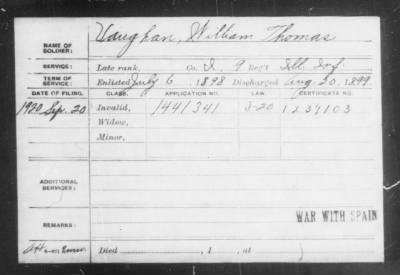 NAME OF SOLDIER: Vaughan, William Thomas
SERVICE: Late rank, Co. D, 9 Reg't Ill. Inf.
TERM OF SERVICE: Enlisted July 6 1898 Discharged Aug. 20, 1899
DATE OF FILING. CLASS. APPLICATION NO. LAW. CERTIFICATE NO.
1920 Sep. 20 Invalid, 1441341 J-20 1237103
Widow,
Minor,
ADDITIONAL SERVICES:
WAR WITH SPAIN
REMARKS:
Died , 1 , at